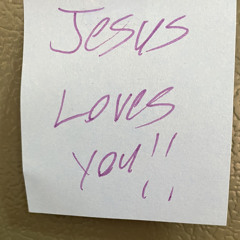 Jesus
Loves
you!!